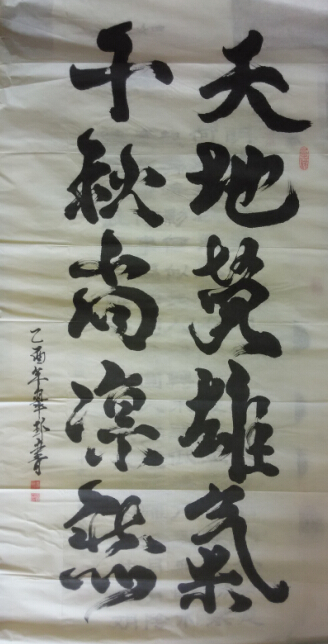 天地英雄氣
千秋尚凛然
乙酉年
書